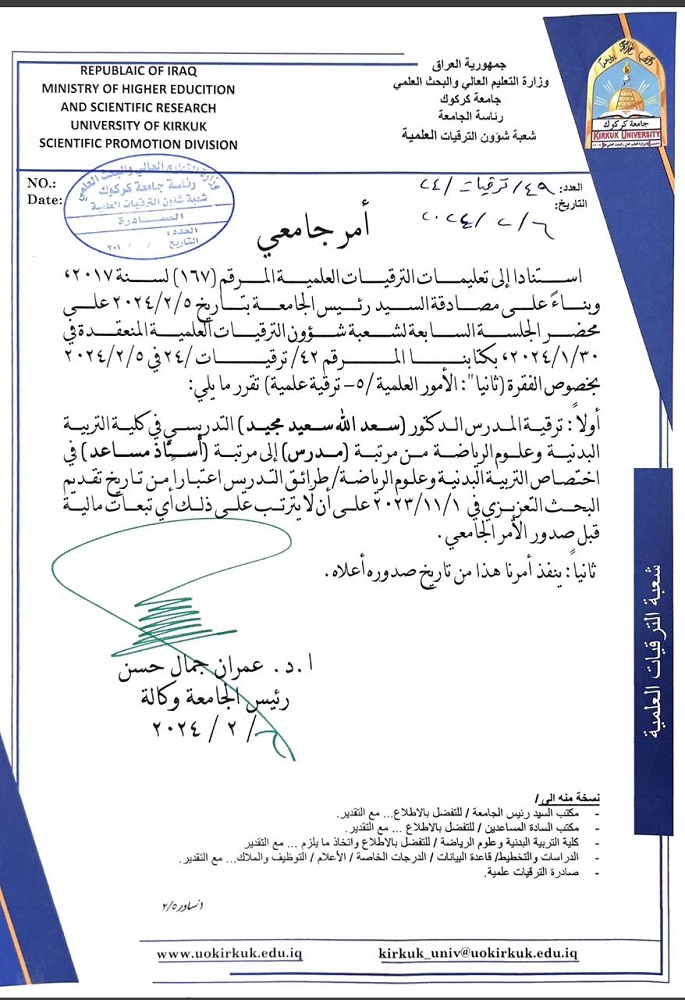 REPUBLAIC OF IRAQ
MINISTRY OF HIGHER EDUCITION
AND SCIENTIFIC RESEARCH
UNIVERSITY OF KIRKUK
SCIENTIFIC PROMOTION DIVISION
جمهورية العراق
وزارة التعليم العالي والبحث العلمي
جامعة كركوك
رئاسة الجامعة
شعبة شؤون الترقيات العلمية
جامعة كركوك
KIRKUK UNIVERSITY
NO.:
Date:
وزارة التعليم العالي والبحث العلمي
رئاسة جامعة كركوك
شعبة شؤون الترقيات العلمية
الصادرة
العدد:
التاريخ
العدد: ٤٩/ترقيات/٢٤
التاريخ: ٢٠٢٤/٢/٦
أمر جامعي
استنادا إلى تعليمات الترقيات العلمية المرقم (١٦٧) لسنة ٢٠١٧،
وبناءً على مصادقة السيد رئيس الجامعة بتاريخ ٢٠٢٤/٢/٥ على
محضر الجلسة السابعة لشعبة شؤون الترقيات العلمية المنعقدة في
٢٠٢٤/١/٣٠، بكتابنا المرقم ٤٢/ ترقيات/ ٢٤ في ٢٠٢٤/٢/٥
بخصوص الفقرة (ثانيا": الأمور العلمية /٥- ترقية علمية) تقرر ما يلي:
أولاً: ترقية المدرس الدكتور (سعد الله سعيد مجيد) التدريسي في كلية التربية
البدنية وعلوم الرياضة من مرتبة (مدرس) إلى مرتبة (أستاذ مساعد) في
اختصاص التربية البدنية وعلوم الرياضة/ طرائق التدريس اعتبارا من تاريخ تقديم
البحث التعزيزي في ٢٠٢٣/١١/١ على أن لا يترتب على ذلك أي تبعات مالية
قبل صدور الأمر الجامعي.
ثانياً: ينفذ أمرنا هذا من تاريخ صدوره أعلاه.
ا.د. عمران جمال حسن
رئيس الجامعة وكالة
/ ٢ / ٢٠٢٤
شعبة الترقيات العلمية
نسخة منه الى/
- مكتب السيد رئيس الجامعة / للتفضل بالاطلاع... مع التقدير.
- مكتب السادة المساعدين / للتفضل بالاطلاع ... مع التقدير.
- كلية التربية البدنية وعلوم الرياضة / للتفضل بالاطلاع واتخاذ ما يلزم ... مع التقدير
- الدراسات والتخطيط/ قاعدة البيانات / الدرجات الخاصة / الأعلام / التوظيف والملاك... مع التقدير.
- صادرة الترقيات علمية.
٢/٥
www.uokirkuk.edu.iq
kirkuk_univ@uokirkuk.edu.iq